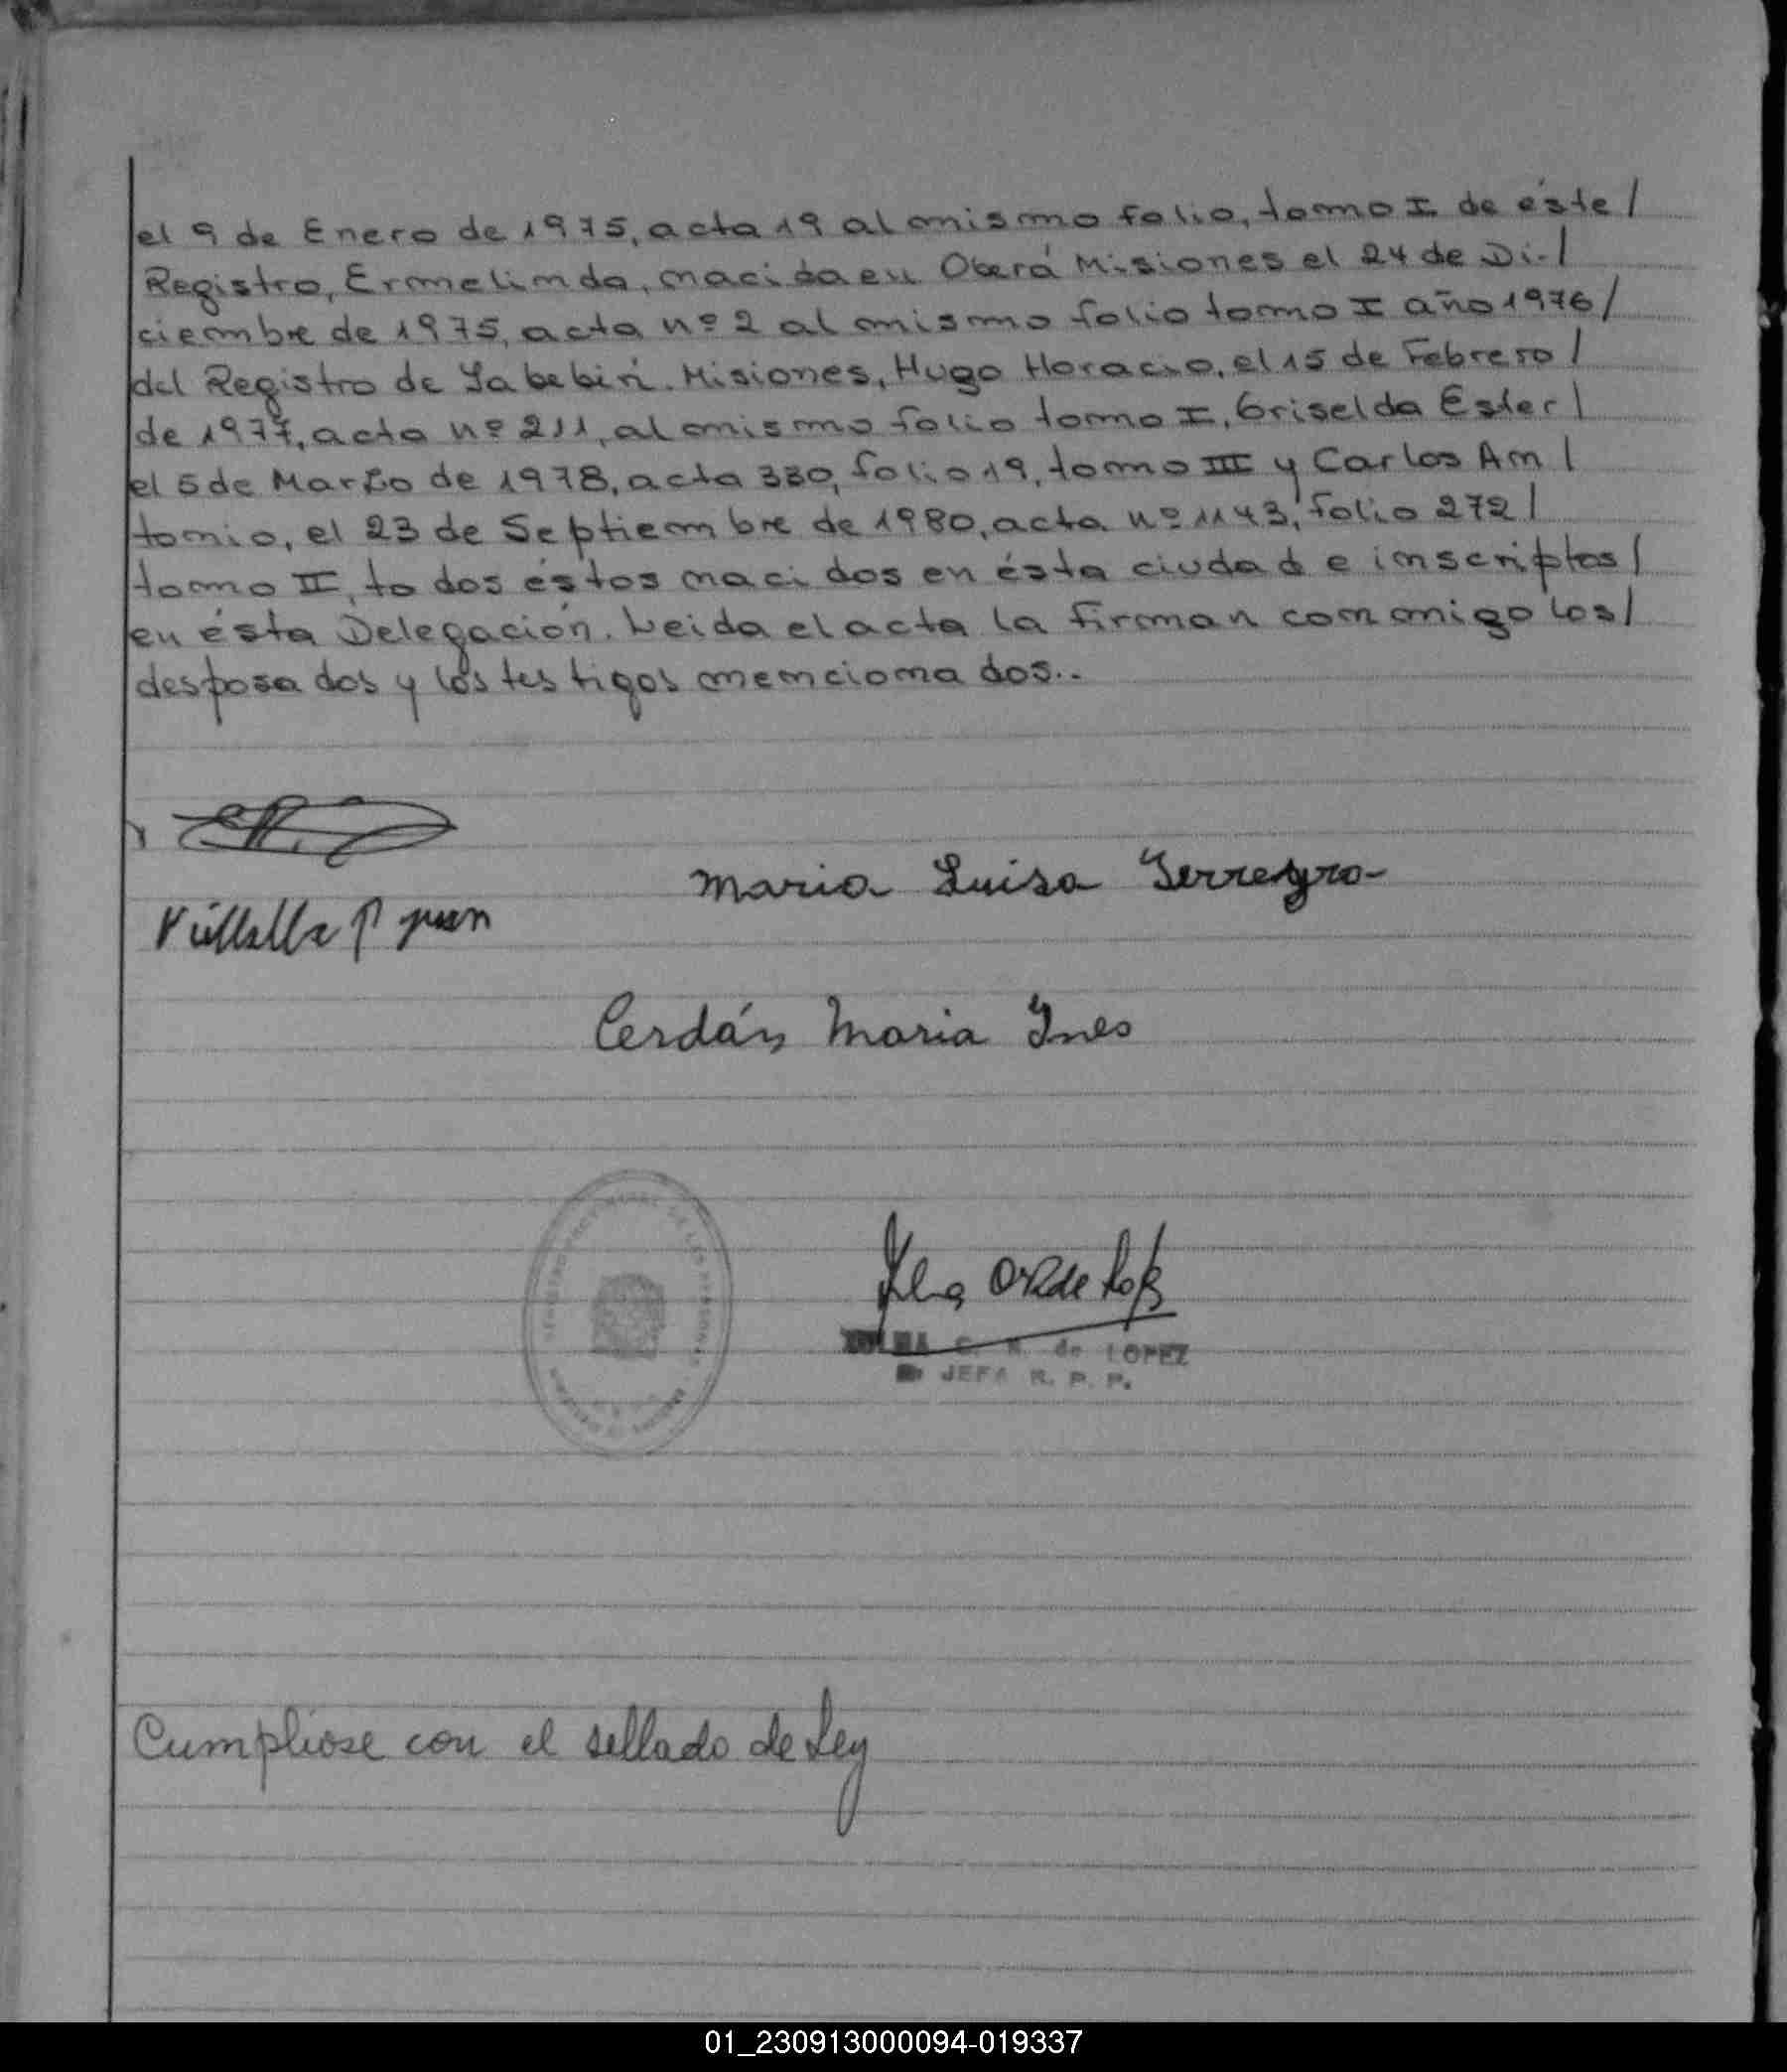 el 9 de Enero de 1975, acta 19 al mismo folio, tomo I de éste /
Registro, Ermelinda, nacida en Oberá Misiones el 24 de Di- /
ciembre de 1975, acta nº 2 al mismo folio tomo I año 1976 /
del Registro de Yabebirí. Misiones, Hugo Horacio, el 15 de Febrero /
de 1977, acta nº 211, al mismo folio tomo I, Griselda Ester /
el 5 de Marzo de 1978, acta 330, folio 19, tomo III y Carlos An /
tonio, el 23 de Septiembre de 1980, acta nº 1143, folio 272 /
tomo II, todos éstos nacidos en ésta ciudad e inscriptos /
en ésta Delegación. Leida el acta la firman conmigo los /
desposados y los testigos mencionados..
Maria Luisa Ferreyro
Villalba juan
Cerdán Maria Ines
de LOPEZ
JEFA R. P. P.
Cumpliose con el sellado de Ley
01_230913000094-019337